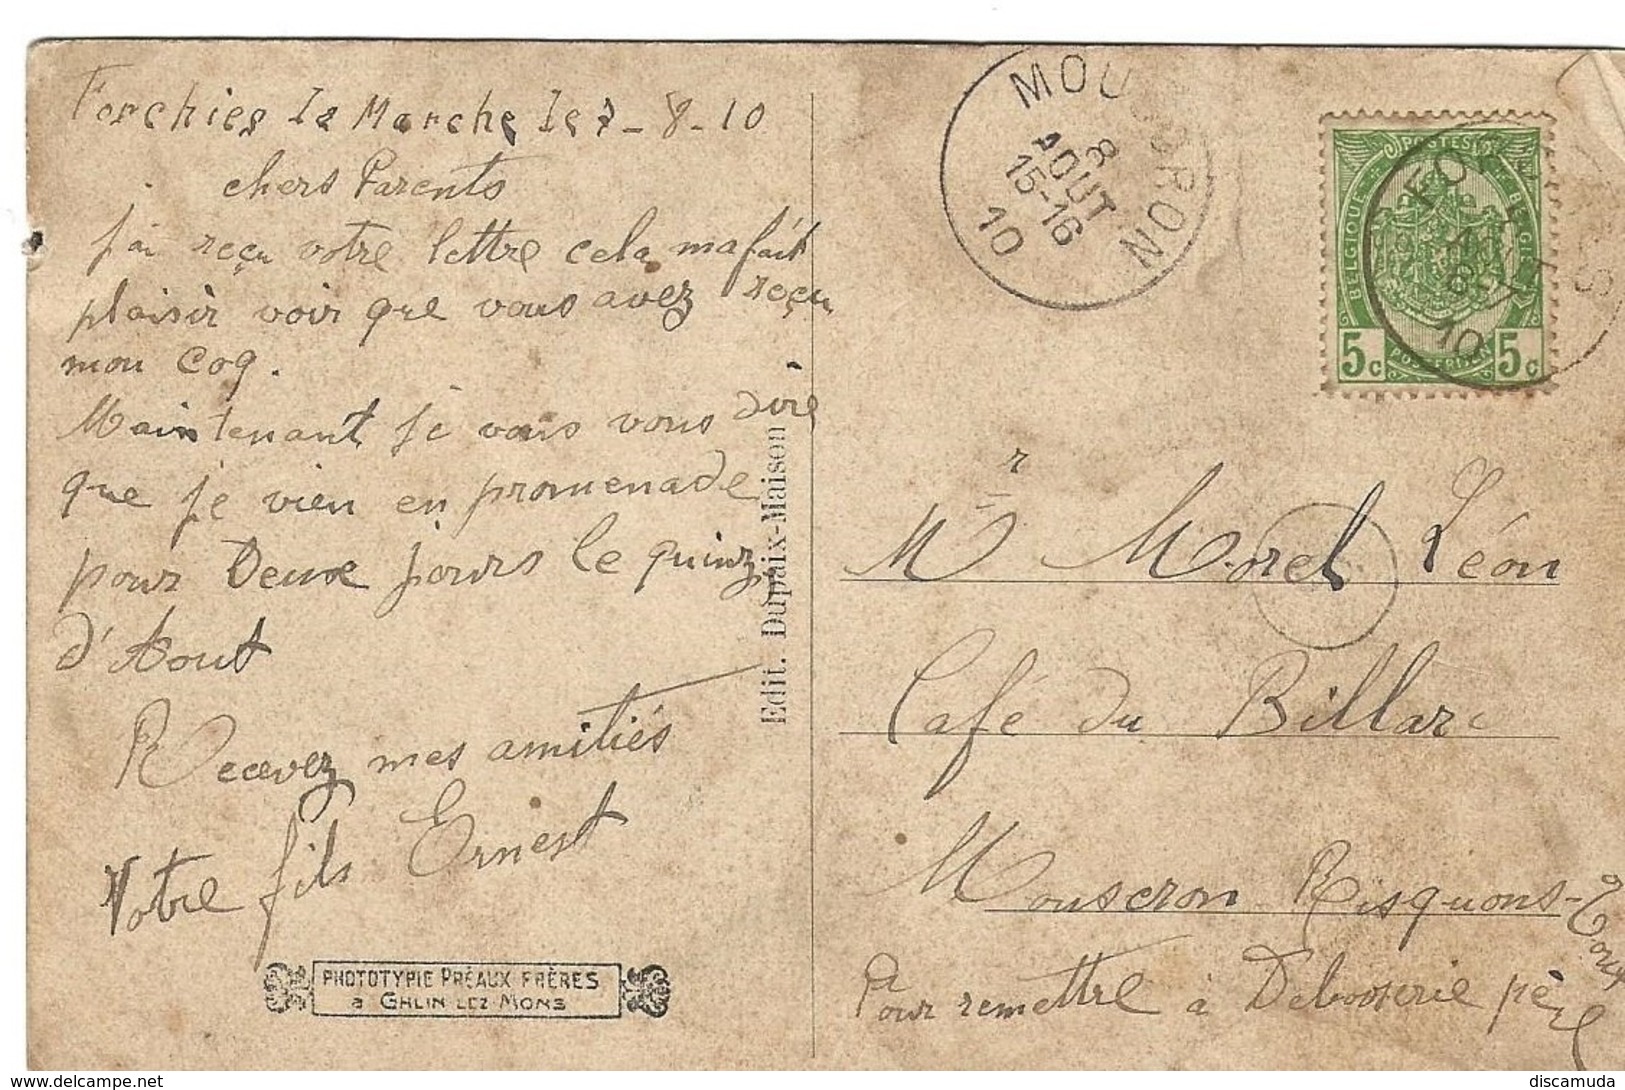 Forchies la Marche le 7 - 8 - 10
chers Parents
j'ai reçu votre lettre cela ma fait
plaisir voir que vous avez reçu
mon coq.
Maintenant je vais vous dire
que je vien en promenade
pour Deux jours le quinz
d'Aout
Recevez mes amitiés
Votre fils Ernest
PHOTOTYPIE PRÉAUX FRÈRES
à GHLIN LEZ-MONS
Edit. Dupaix-Maison
MOUSCRON
8
AOUT
15-16
10
POSTES
BELGIQUE
BELGIE
5c 5c
10
Mr Morel Léon
Café du Billard
Mouscron Risquons-Tout
Pour remettre à père
delcampe.net
discamuda